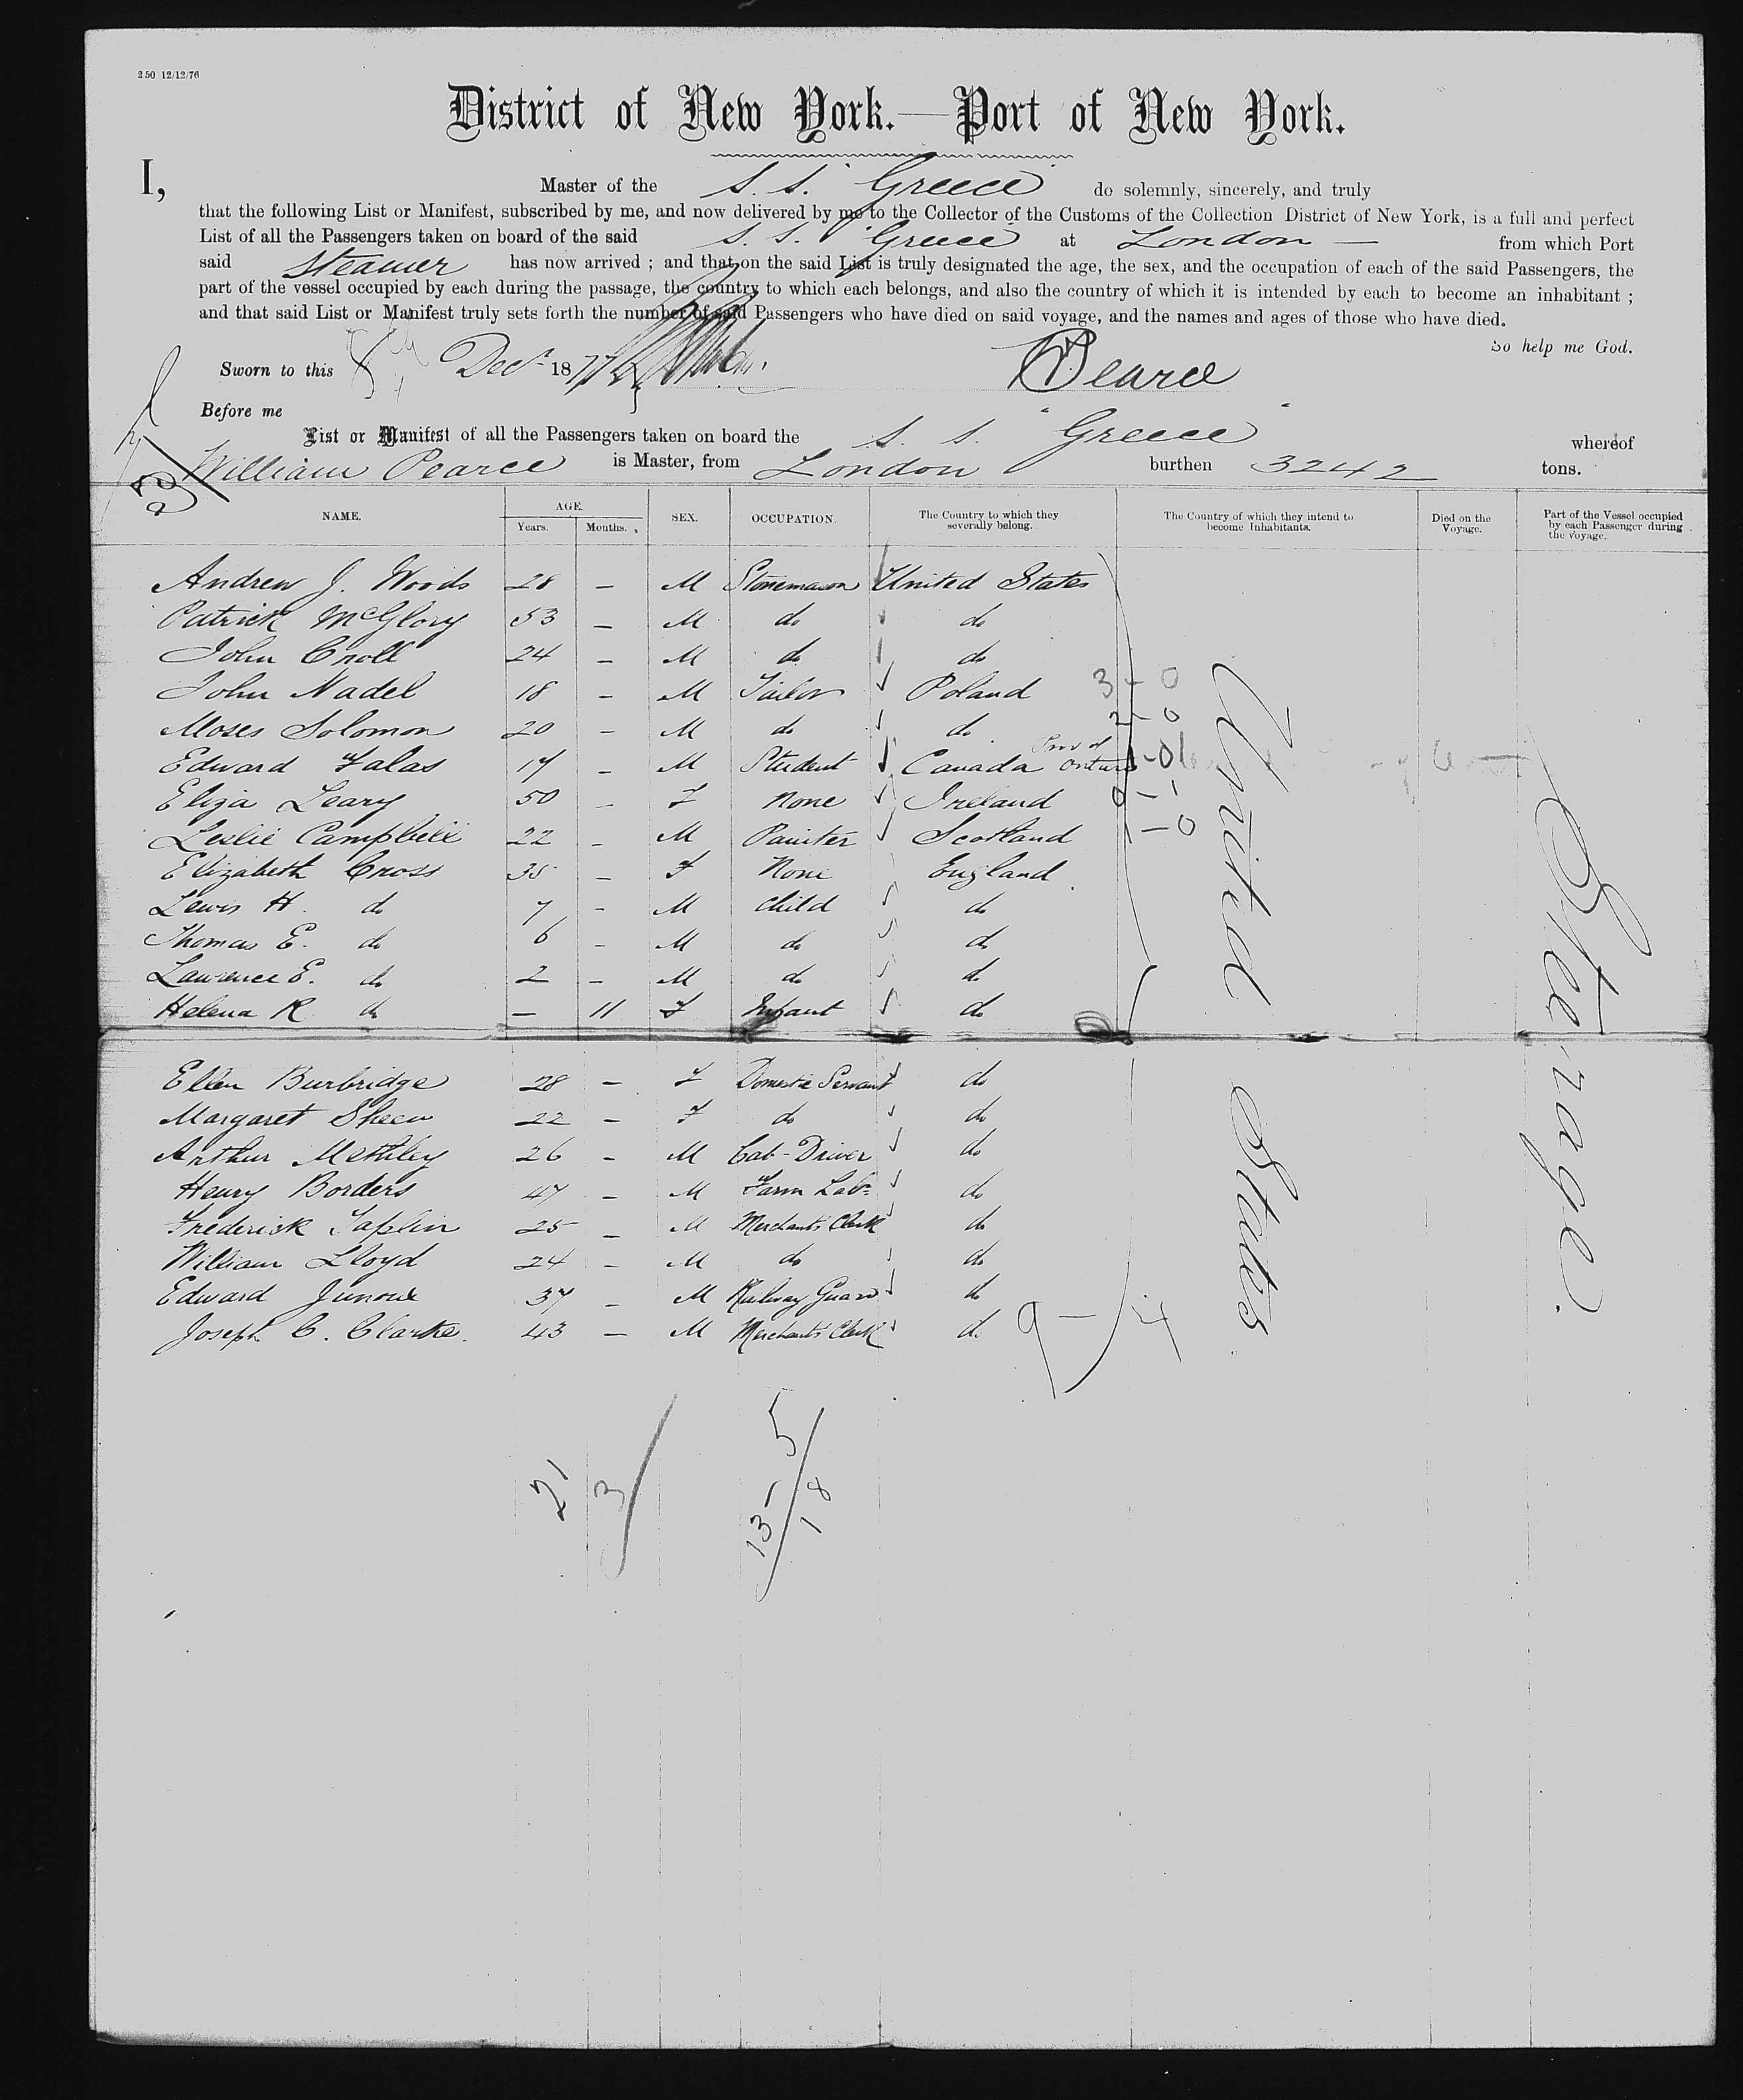 250 12/12/76
District of New York.—Port of New York.
I, Master of the S. S. "Greece" do solemnly, sincerely, and truly
that the following List or Manifest, subscribed by me, and now delivered by me to the Collector of the Customs of the Collection District of New York, is a full and perfect
List of all the Passengers taken on board of the said S. S. "Greece" at London — from which Port
said Steamer has now arrived ; and that on the said List is truly designated the age, the sex, and the occupation of each of the said Passengers, the
part of the vessel occupied by each during the passage, the country to which each belongs, and also the country of which it is intended by each to become an inhabitant ;
and that said List or Manifest truly sets forth the number of said Passengers who have died on said voyage, and the names and ages of those who have died.
So help me God.
Sworn to this 8 Decr 1877 W Pearce
Before me
List or Manifest of all the Passengers taken on board the S. S. "Greece" whereof
William Pearce is Master, from London burthen 3242 tons.
NAME. AGE. SEX. OCCUPATION. The Country to which they severally belong. The Country of which they intend to become Inhabitants. Died on the Voyage. Part of the Vessel occupied by each Passenger during the voyage.
Years. Months.
Andrew J. Woods 28 — M Stonemason United States
Patrick McGlory 53 — M do do
John Croll 24 — M do do
John Nadel 18 — M Tailor Poland 3-0
Moses Solomon 20 — M do do 2-0
Edward Falas 17 — M Student Canada Prov of Ontario 1-0
Eliza Leary 50 — F None Ireland 0-1
Leslie Campbell 22 — M Painter Scotland 1-0
Elizabeth Cross 35 — F None England
Lewis H. do 7 — M Child do
Thomas E. do 6 — M do do
Lawrence E. do 2 — M do do
Helena R do — 11 F Infant do
Ellen Burbridge 28 — F Domestic Servant do
Margaret Sheen 22 — F do do
Arthur Methley 26 — M Cab-Driver do
Henry Borders 47 — M Farm Labr do
Frederick Taplin 25 — M Merchants Clerk do
William Lloyd 24 — M do do
Edward Junoux 37 — M Railway Guard do
Joseph C. Clarke. 43 — M Merchants Clerk do 9-4
United States
Steerage.
21 3
13-5
18